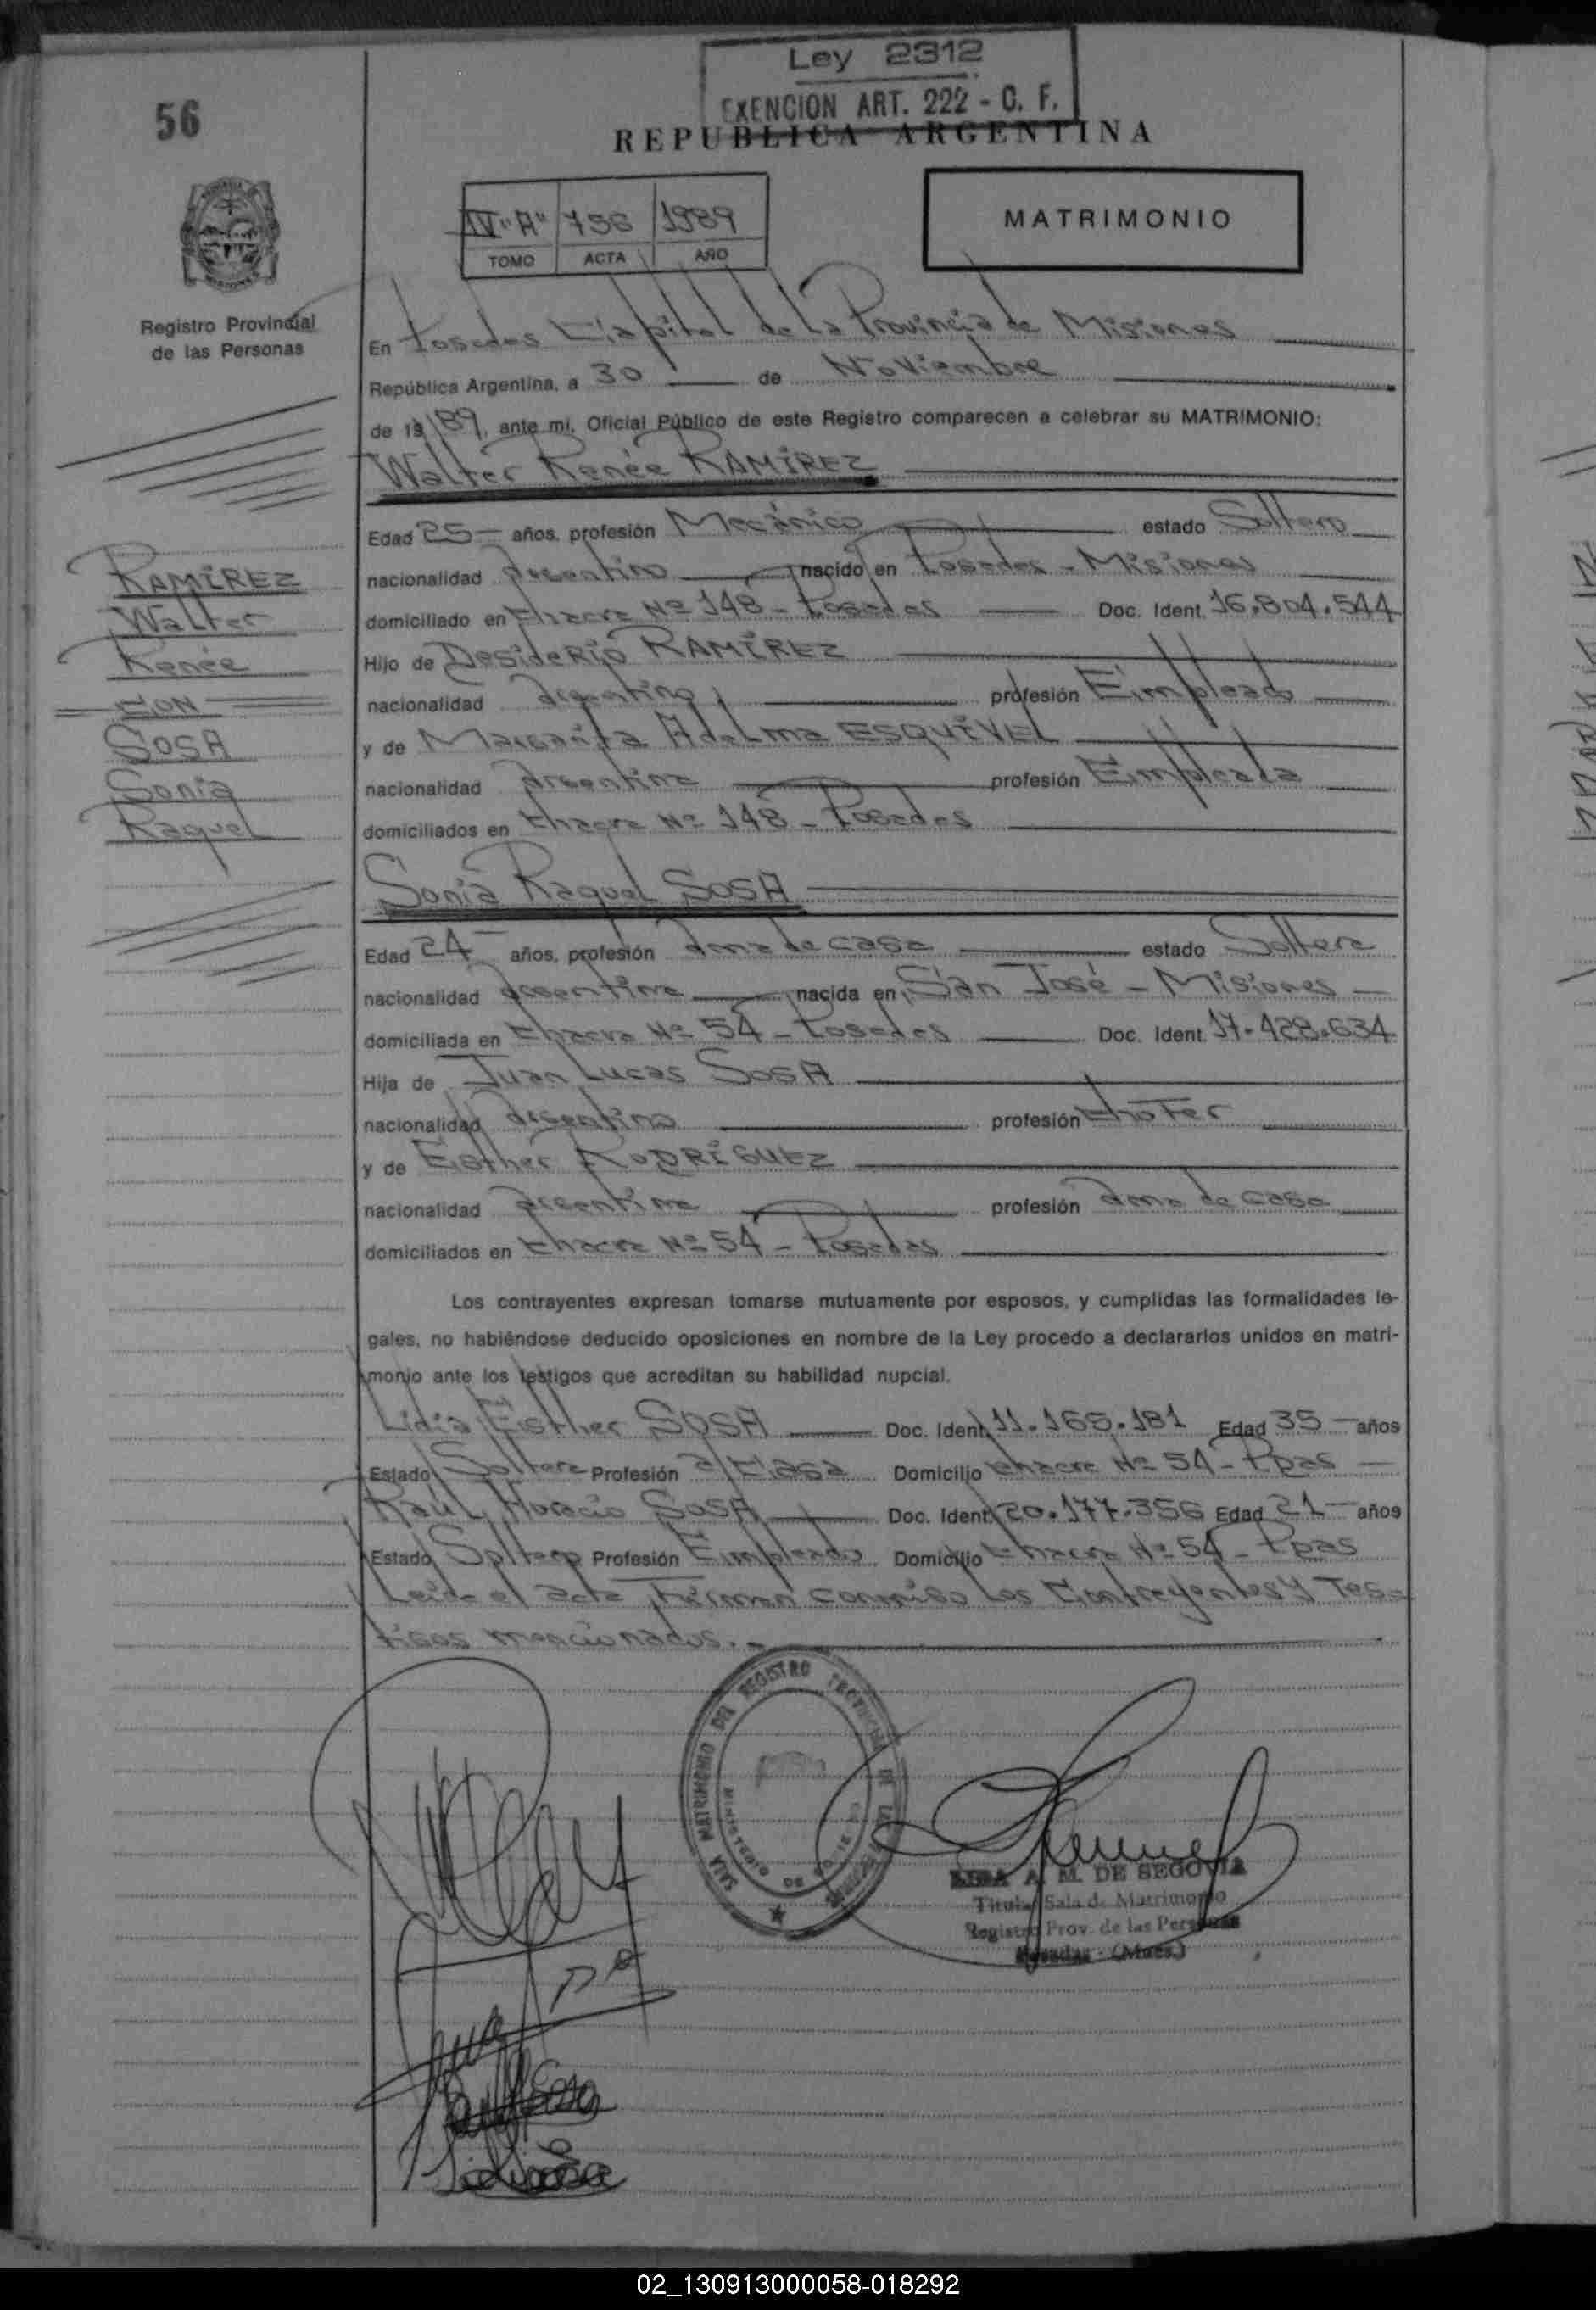 Ley 2312
EXENCION ART. 222 - C. F.
56
REPUBLICA ARGENTINA
IV "A" 756 1989
TOMO ACTA AÑO
MATRIMONIO
Registro Provincial
de las Personas
En Posadas Capital de la Provincia de Misiones
República Argentina, a 30 de Noviembre
de 19 89, ante mi, Oficial Público de este Registro comparecen a celebrar su MATRIMONIO:
Walter Renée RAMÍREZ
Edad 25 años, profesión Mecánico estado Soltero
nacionalidad argentino nacido en Posadas - Misiones
domiciliado en Chacra Nº 148 - Posadas Doc. Ident. 16.804.544
Hijo de Desiderio RAMÍREZ
nacionalidad argentino profesión Empleado
y de Margarita Adelma ESQUIVEL
nacionalidad argentina profesión Empleada
domiciliados en Chacra Nº 148 - Posadas
RAMÍREZ
Walter
Renée
CON
SOSA
Sonia
Raquel
Sonia Raquel SOSA
Edad 24 años, profesión ama de casa estado Soltera
nacionalidad argentina nacida en San José - Misiones
domiciliada en Chacra Nº 54 - Posadas Doc. Ident. 17.428.634
Hija de Juan Lucas SOSA
nacionalidad argentino profesión Chofer
y de Esther RODRÍGUEZ
nacionalidad argentina profesión ama de casa
domiciliados en Chacra Nº 54 - Posadas
Los contrayentes expresan tomarse mutuamente por esposos, y cumplidas las formalidades le-
gales, no habiéndose deducido oposiciones en nombre de la Ley procedo a declararlos unidos en matri-
monio ante los testigos que acreditan su habilidad nupcial.
Lidia Esther SOSA Doc. Ident. 11.165.181 Edad 35 años
Estado Soltera Profesión a/casa Domicilio Chacra Nº 54 - Pdas
Raúl Horacio SOSA Doc. Ident. 20.177.356 Edad 21 años
Estado Soltero Profesión Empleado Domicilio Chacra Nº 54 - Pdas
Leída el acta, firman conmigo los Contrayentes y Tes-
tigos mencionados.-
SALA MATRIMONIO DEL REGISTRO PROVINCIAL DE LAS PERSONAS
MINISTERIO DE GOBIERNO
LIDA A. M. DE SEGOVIA
Titular Sala de Matrimonio
Registro Prov. de las Personas
Posadas - (Mnes.)
02_130913000058-018292